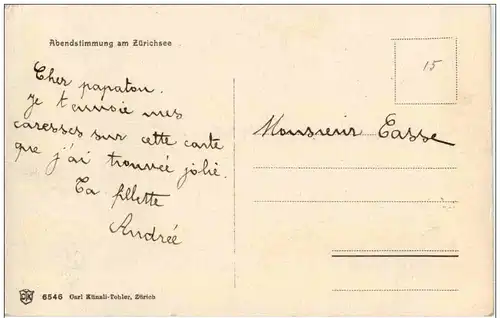 Abendstimmung am Zürichsee
Cher papaton.
je t'envoie mes
caresses sur cette carte
que j'ai trouvée jolie.
Ta fillette
Andrée
15
Monsieur Tasse
6546 Carl Künzli-Tobler, Zürich